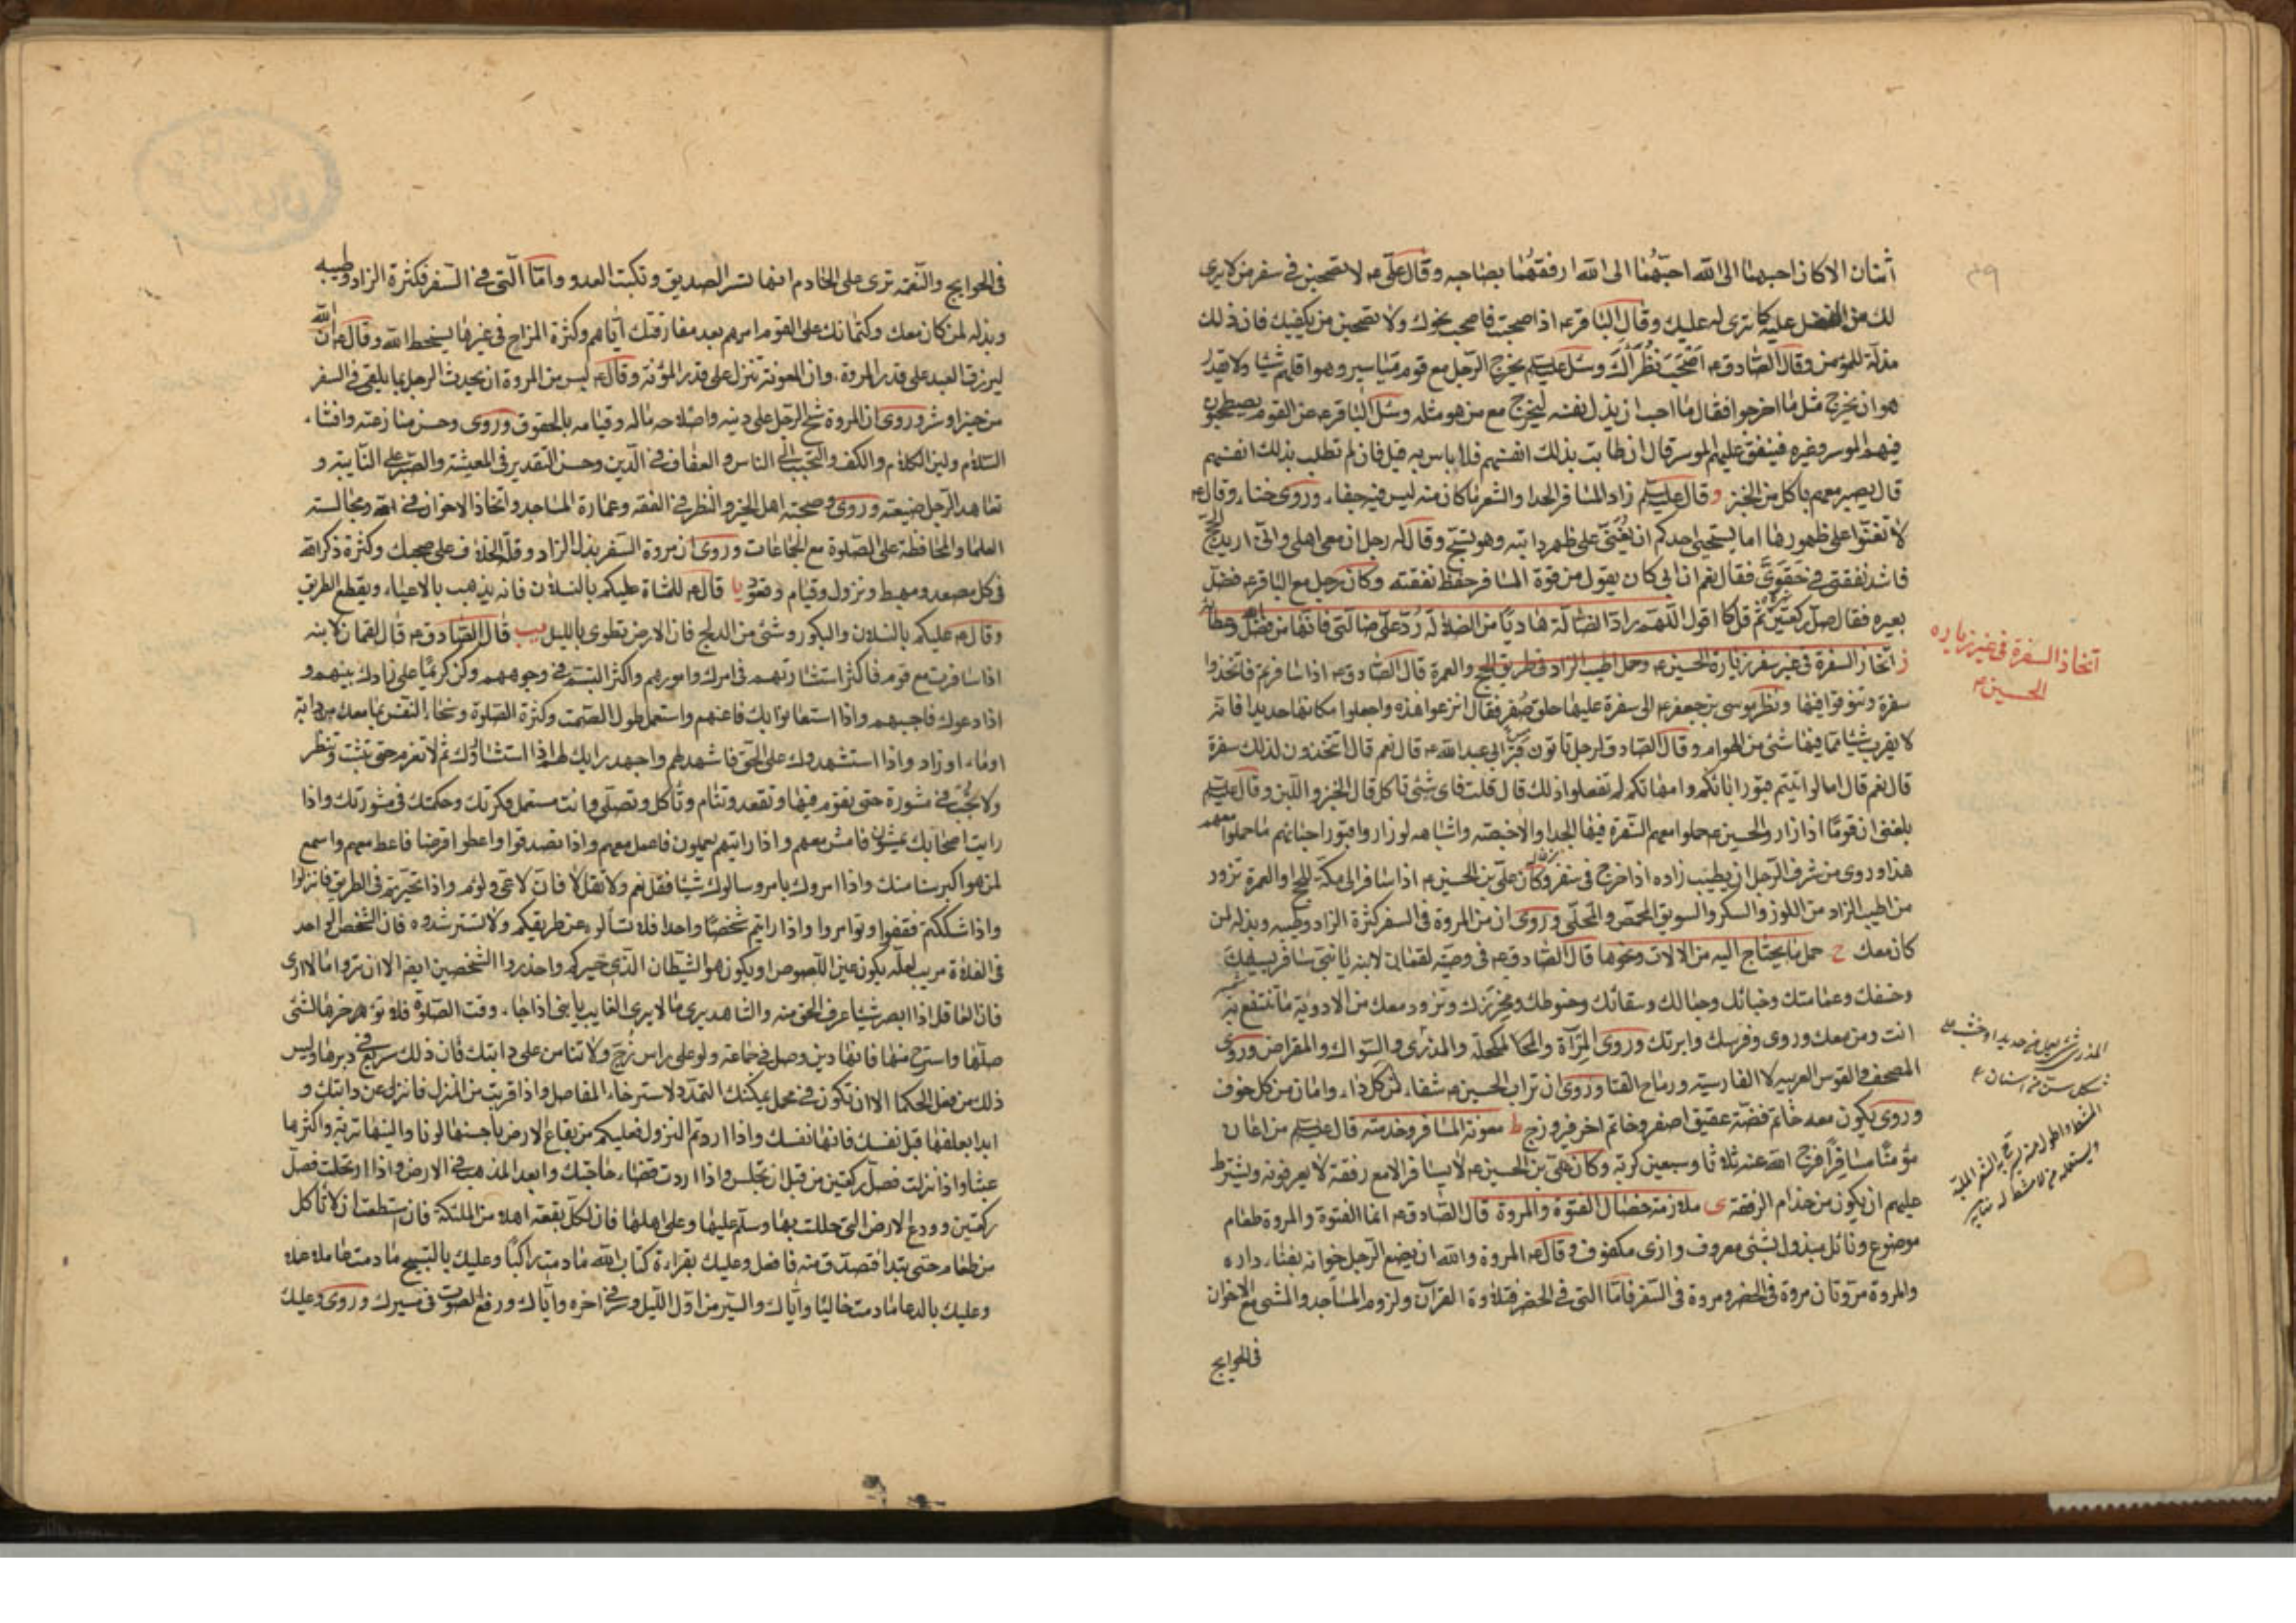 اثنان الا كان احبهما الى الله احبّهُما الى الله ارفقهُما بصاحبه وقال علىّ ع لا تصحبن فى سفر من لا يرى
لك من الفضل عليه كما ترى له عليك وقال الباقر ع اذا صحبت فاصحب نحوك ولا تصحبن من يكفيك فان ذلك
مذلة للمؤمن وقال الصّادق ع اصحب نُظَراءَك وسئل عليه السلم يخرج الرّجل مع قوم مياسير وهو اقلهم شيئا ولا يقدر
هو ان يخرج مثل ما اخرجوا فقال ما احب ان يذل نفسه ليخرج مع من هو مثله وسئل الباقر ع عن القوم يصطحبون
فيهم الموسر وغيره فينفق عليهم الموسر قال ان طابت بذلك انفسهم فلا باس به قيل فان لم تطلب بذلك انفسهم
قال يصير معهم ياكل من الخبز و قال عليه السلم زاد المسافر الحدا والشعر ما كان منه ليس فيه جفاء وروى خناء وقال ع
لا تغنّوا على ظهورها اما يستحيى احدكم ان يُغنّى على ظهر دابته وهو تسبّح وقال له رجل ان معى اهلى وانّى اريد الحجّ
فاشد نفقتى فى حَقوىَّ فقال نعم ان ابى كان يقول من قوة المسافر حفظ نفقته وكان رجل مع الباقر ع فضل
بعيره فقال صل ركعتين ثم قل كما اقول اللّهمّ رادّ الضالّة هاديًا من الضلالة رُدّ علىّ ضالتى فانها من فضل الله وعطائه
ز اتخاذ السفرة فى غير سفر زيارة الحسين ع وحمل اطيب الزاد فى طريق الحج والعمرة قال الصّادق ع اذا سافرتم فاتخذوا
سفرة وتنوقوا فيها ونظر موسى بن جعفر ع الى سفرة عليها حلق صُفر فقال انزعوا هذه واجعلوا مكانها حديدا فانه
لا يقرب شيئا ممّا فيها شئ من الهوام وقال الصّادق لرجل تاتون قبر ابى عبد الله ع قال نعم قال اتتخذون لذلك سفرة
قال نعم قال اما لو اتيتم قبور ابائكم وامهاتكم لم تفعلوا ذلك قال قلت فاى شئ ناكل قال الخبز واللبن وقال عليه السلم
بلغنى ان قومًا اذا زاروا الحسين ع حملوا معهم السّفرة فيها الجدا والاخبصة واشباهه لو زاروا قبور احبائهم ما حملوا معهم
هذا وروى من شرف الرّجل ان يطيب زاده اذا خرج فى سفر وكان علىّ بن الحسين ع اذا سافر الى مكّة للحج او العمرة تزود
من اطيب الزاد من اللوز والسكر والسويق المحمّص والمحلّى وروى ان من المروة فى السفر كثرة الزاد وطيبه وبذله لمن
كان معك ح حمل ما يحتاج اليه من الالات ونحوها قال الصّادق ع فى وصيّة لقمان لابنه يا بنىّ سافر بسيفك
وخفك وعمامتك وخبائك وحبالك وسقائك وخيوطك ومخرزك وتزود معك من الادوية ما تنتفع به
انت ومن معك وروى وفرسك وابرتك وروى المرآة والمكحلة والمذرى والسّواك والمقراض وروى
المصحف والقوس العربيه لا الفارسيّة ورماح القنا وروى ان تراب الحسين ع شفاء لمن كل داء وامان من كل خوف
وروى يكون معه خاتم فضّة عقيق اصفر وخاتم اخر فيروزج ط معونة المسافر وخدمته قال عليه السلم من اعان
مؤمنًا مسافرًا فرّج الله عنه ثلاثا وسبعين كربة وكان على بن الحسين ع لا يسافر الا مع رفقة لا يعرفونه ويشترط
عليهم ان يكون من خدّام الرفقة ى ملازمة خصال الفتوة والمروة قال الصّادق ع انما الفتوة والمروة طعام
موضوع ونائل مبذول بشئ معروف واذى مكفوف وقال ع المروة والله ان يضع الرّجل خوانه بفناء داره
والمروة مروتان مروة فى الحضر ومروة فى السّفر فامّا التى فى الحضر فتلاوة القرآن ولزوم المساجد والمشى مع الاخوان
فى الحوايج
اتخاذ السفرة فى غير زياره
الحسين ع
فى الحوايج والنّعمة ترى على الخادم انها تسر الصديق وتكبت العدو وامّا الّتى فى السّفر فكثرة الزاد وطيبه
وبذله لمن كان معك وكتمانك على القوم امرهم بعد مفارقتك ايّاهم وكثرة المزاح فى غير ما يسخط الله وقال ع ان الله
ليرزق العبد على قدر المروة وان المعونة تنزل على قدر المؤنة وقال ع ليس من المروة ان يحدث الرجل بما يلقى فى السفر
من خير او شر وروى ان المروة شح الرّجل على دينه واصلاحه ماله وقيامه بالحقوق وروى وحسن منازعته وافشاء
السّلام ولين الكلام والكف والتحبّب الى الناس والعفاف فى الدّين وحسن التقدير فى المعيشة والصّبر على النائبة و
تعاهد الرّجل ضيعته وروى وصحبته اهل الخير والنظر فى الفقه وعمارة المساجد واتخاذ الاخوان فى الله ومجالسته
العلما والمحافظة على الصّلوة مع الجماعات وروى ان مروة السّفر بذل الزاد وقلّة الخلاف على صحبك وكثرة ذكر الله
فى كل مصعد ومهبط ونزول وقيام وقعود يا قال ع للمشاة عليكم بالنسلان فانه يذهب بالاعياء ويقطع الطريق
وقال ع عليكم بالنسلان والبكور وشئ من الدلج فان الارض تطوى بالليل يب قال الصّادق ع قال لقمان لابنه
اذا سافرت مع قوم فاكثر استشارتهم فى امرك وامورهم واكثر التبسم فى وجوههم وكن كريمًا على زادك بينهم و
اذا دعوك فاجبهم واذا استعانوا بك فاعنهم واستعمل طول الصّمت وكثرة الصّلوة وسخاء النفس بما معك من دابة
او ماء او زاد واذا استشهدوك على الحقّ فاشهد لهم واجهد رايك لهم اذا استشاروك ثم لا تعزم حتى تثبت وتنظر
ولا تجب فى مشورة حتى تقوم فيها وتقعد وتنام وتاكل وتصلّى وانت مستعمل فكرتك وحكمتك فى مشورتك واذا
رايت اصحابك يمشون فامش معهم واذا رايتهم يعملون فاعمل معهم واذا تصدقوا واعطوا قرضا فاعط معهم واسمع
لمن هو اكبر سنا منك واذا امروك بامر وسالوك شيئا فقل نعم ولا تقل لا فان لا عىّ ولؤم واذا تحيّرتم فى الطريق فانزلوا
واذا شككتم فقفوا وتوامروا واذا رايتم شخصًا واحدا فلا تسألوه عن طريقكم ولا تسترشدوه فان الشخص الواحد
فى الفلاة مريب لعلّه يكون عين اللّصوص او يكون هو الشيطان الّذى حيركم واحذروا الشخصين ايضا الا ان تروا ما لا ارى
فان العاقل اذا ابصر شيئا عرف الحق منه والشاهد يرى ما لا يرى الغايب يا بنى اذا جاء وقت الصّلوة فلا تؤخرها لشئ
صلّها واسترح منها فانها دين وصل فى جماعة ولو على راس زُجّ ولا تنامن على دابتك فان ذلك سريع فى دبرها وليس
ذلك من فعل الحكما الا ان تكون فى محمل يمكنك التمدّد لاسترخاء المفاصل واذا قربت من المنزل فانزل عن دابتك و
ابدا بعلفها قبل نفسك فانها نفسك واذا اردتم النزول فعليكم من بقاع الارض باحسنها لونا والينها تربة واكثرها
عشبا واذا نزلت فصلّ ركعتين من قبل ان تجلس واذا اردت قضاء حاجتك وابعد المذهب فى الارض واذا ارتحلت فصلّ
ركعتين وودع الارض التى حللت بها وسلّم عليها وعلى اهلها فان لكلّ بقعة اهلا من الملئكة فان استطعت ان لا تاكل
من طعام حتى تبدا فتصدّق منه فافعل وعليك بقراءة كتاب الله ما دمت راكبًا وعليك بالتسبيح ما دمت عاملا عملا
وعليك بالدعا ما دمت خاليًا وايّاك والسّير من اوّل اللّيل وسر فى اخره وايّاك ورفع الصّوت فى مسيرك وروى وعليك